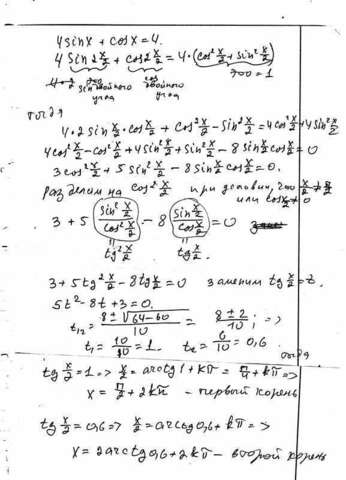 4 sin x + cos x = 4.
4 sin 2 x/2 + cos 2 x/2 = 4·(cos² x/2 + sin² x/2)
это sin двойного угла cos двойного угла это = 1
тогда
4·2 sin x/2 · cos x/2 + cos² x/2 − sin² x/2 = 4 cos² x/2 + 4 sin² x/2
4 cos² x/2 − cos² x/2 + 4 sin² x/2 + sin² x/2 − 8 sin x/2 cos x/2 = 0
3 cos² x/2 + 5 sin² x/2 − 8 sin x/2 cos x/2 = 0.
Разделим на cos² x/2 при условии, что
или cos x/2 ≠ 0
3 + 5 (sin² x/2)/(cos² x/2) − 8 (sin x/2)/(cos x/2) = 0
" "
tg² x/2 tg x/2
3 + 5 tg² x/2 − 8 tg x/2 = 0 заменим tg x/2 = t.
5t² − 8t + 3 = 0.
t₁₂ = (8 ± √64−60)/10 = (8 ± 2)/10 ; =>
t₁ = 10/10 = 1. t₂ = 6/10 = 0,6.
тогда
tg x/2 = 1 => x/2 = arctg 1 + kπ = π/4 + kπ =>
x = π/2 + 2kπ - первый корень
tg x/2 = 0,6 => x/2 = arctg 0,6 + kπ =>
x = 2 arctg 0,6 + 2kπ - второй корень